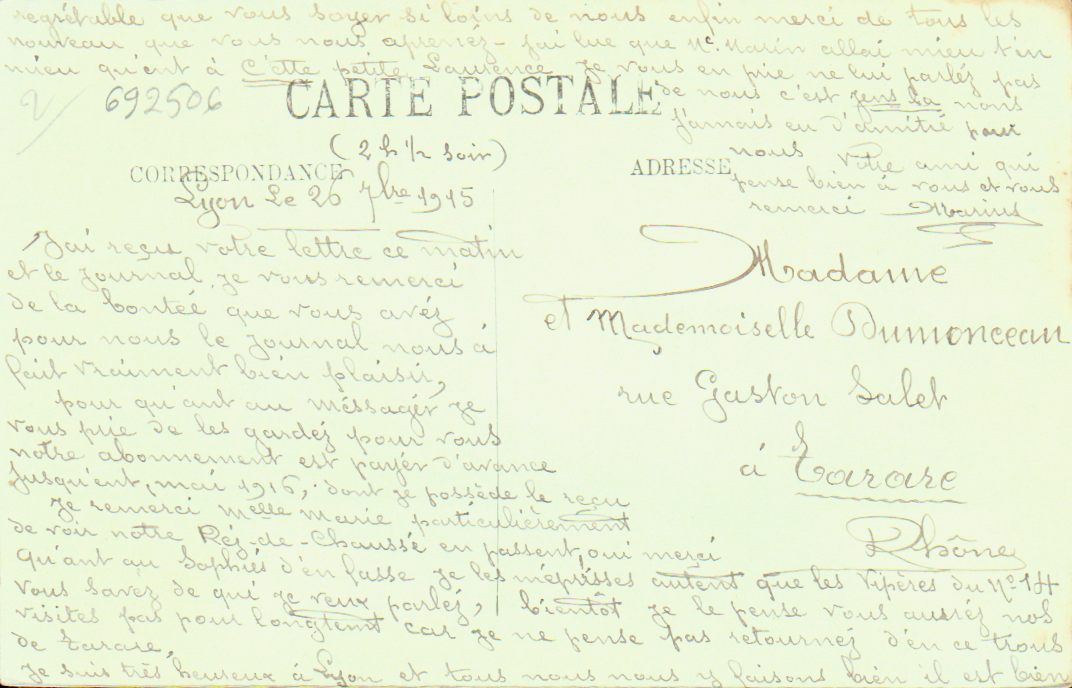 regrétable que vous soyer si loins de nous enfin merci de tous les
nouveau que vous nous aprenez - jai lue que Mr. Marin allai mieu tin
mieu qu'ent à Cette petite Laurence Je vous en prie ne lui parléz pas
de nous c'est gens la nous
J'amais eu d'amitié pour
nous Votre ami qui
pense bien à vous et vous
remerci Marius
2/ 692506
CARTE POSTALE
(2 h 1/2 soir)
CORRESPONDANCE
ADRESSE
Lyon Le 26 7bre 1915
J'ai reçu votre lettre ce matin
et le Journal, je vous remerci
de la bontée que vous avéz
pour nous le Journal nous à
fait vraiment bien plaisir,
pour qu'ant au Méssagér Je
vous prie de les gardéz pour vous
notre abonnement est payér d'avance
Jusqu'ent, mai 1916, dont je possède le reçu
Je remerci Melle Marie particulièrement
de voir notre Réz-de-Chaussé en passent, oui merci
Qu'ant au Sophiés d'én fasse Je les méprisses autent que les Vipères du No 14
vous savéz de qui je veux parléz, bientôt Je le pense vous auréz nos
visites pas pour longtemt car Je ne pense pas retournéz d'én ce trous
de Tarare,
Je suis très heureux à Lyon et tous nous nous y plaisons bien il est bien
Madame
et Mademoiselle Dumonceau
rue Gaston Salet
à Tarare
Rhône